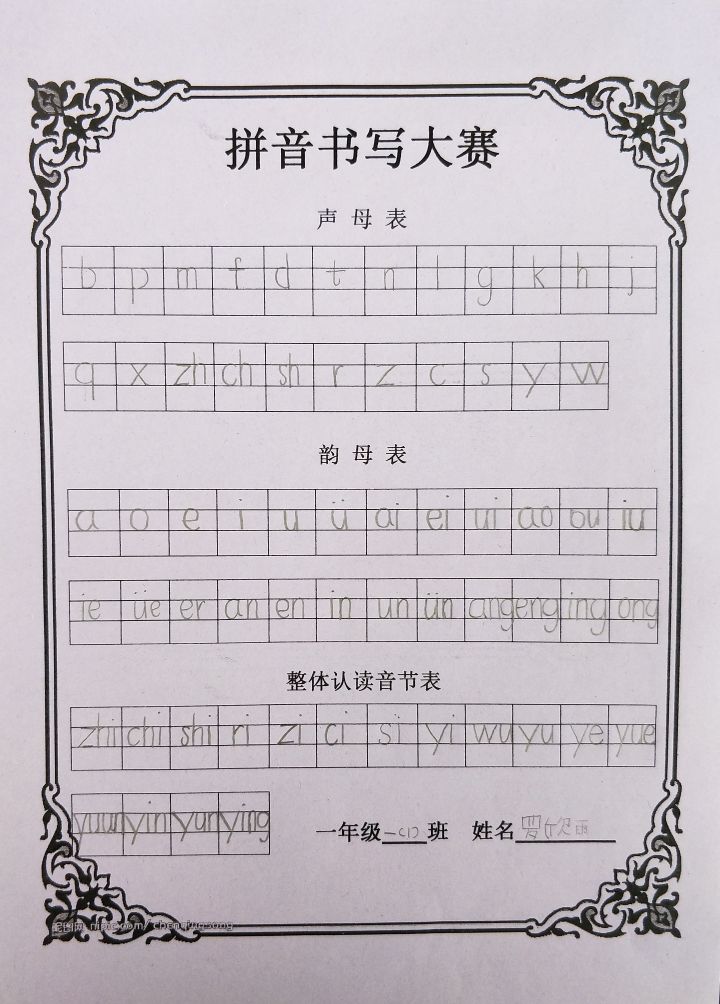 拼音书写大赛
声 母 表
b p m f d t n l g k h j
q x zh ch sh r z c s y w
韵 母 表
a o e i u ü ai ei ui ao ou iu
ie üe er an en in un ün ang eng ing ong
整体认读音节表
zhi chi shi ri zi ci si yi wu yu ye yue
yuan yin yun ying
一年级 一(1) 班 姓名 罗欣雨